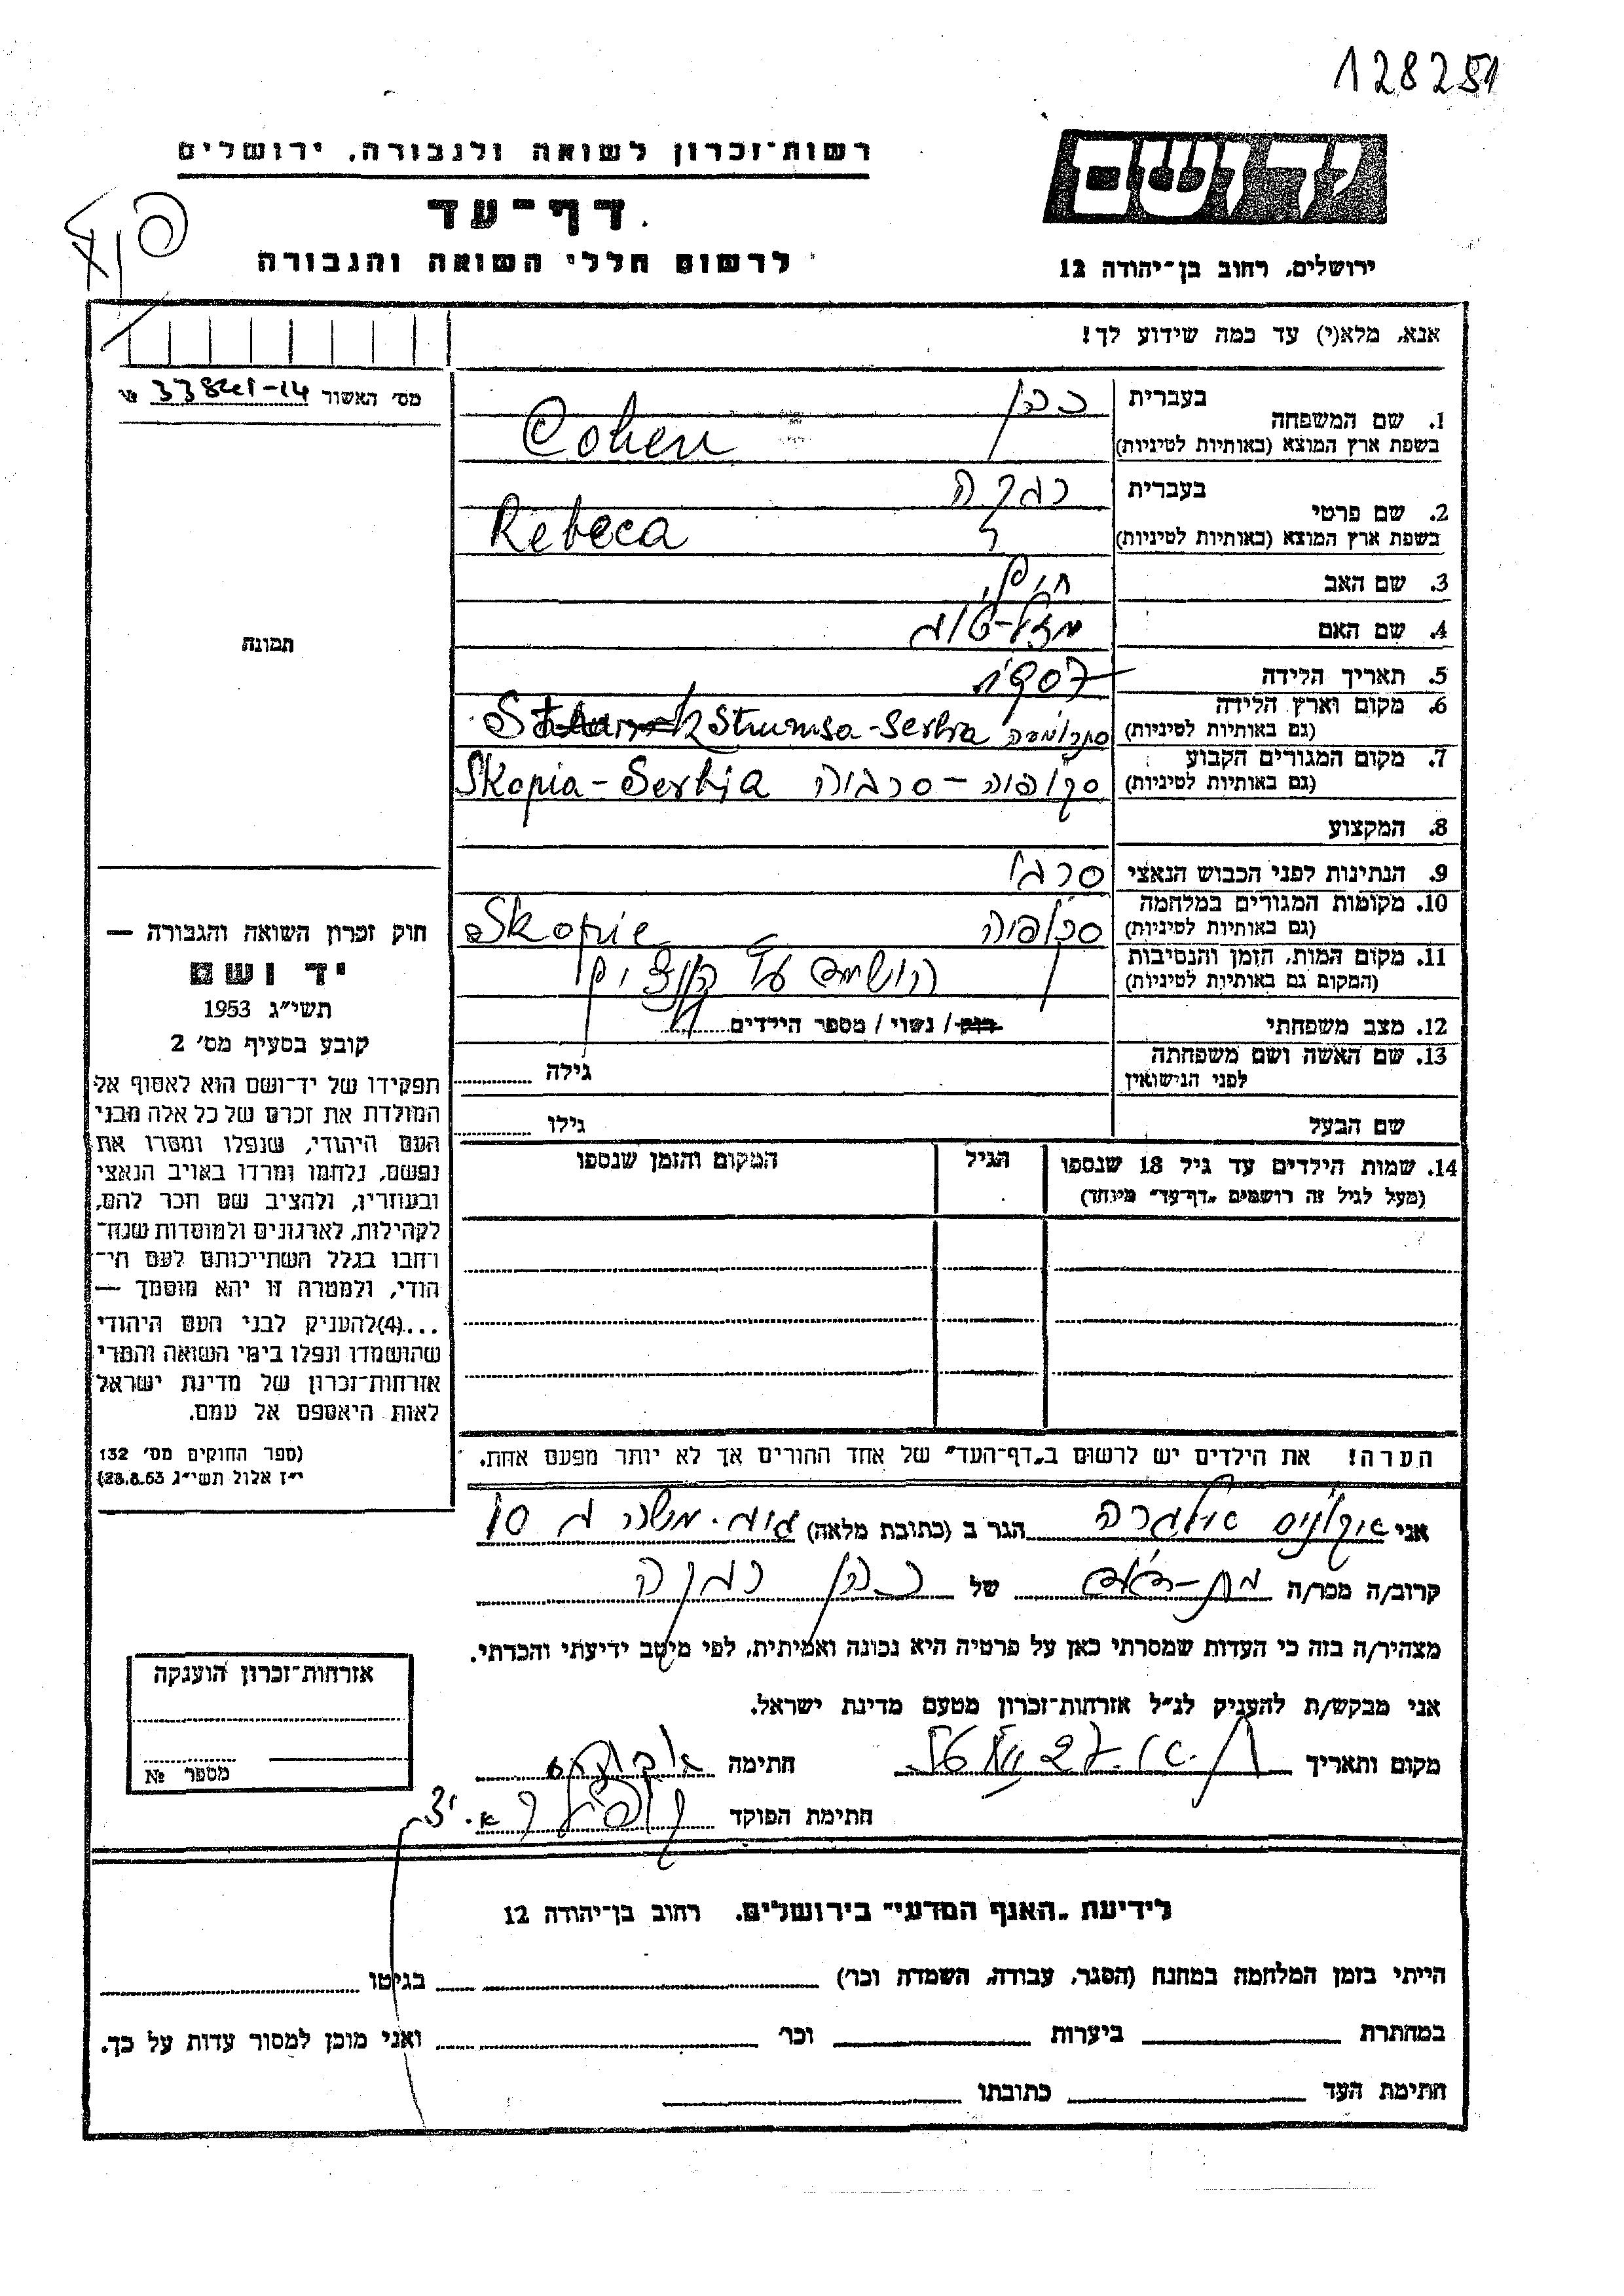 128251
רשות־זכרון לשואה ולגבורה, ירושלים
יד ושם
דף־עד
לרשום חללי השואה והגבורה
ירושלים, רחוב בן־יהודה 12
אנא, מלא(י) עד כמה שידוע לך!
מס׳ האשור 33841-14
1. שם המשפחה
בעברית כהן
בשפת ארץ המוצא (באותיות לטיניות) Cohen
2. שם פרטי
בעברית רבקה
בשפת ארץ המוצא (באותיות לטיניות) Rebeca
3. שם האב
4. שם האם מזל-טוב
5. תאריך הלידה 1907
6. מקום וארץ הלידה
(גם באותיות לטיניות) Strumsa-Serbia
7. מקום המגורים הקבוע
(גם באותיות לטיניות) סקופיה - סרביה Skopia - Serbia
8. המקצוע
9. הנתינות לפני הכבוש הנאצי סרבי
10. מקומות המגורים במלחמה
(גם באותיות לטיניות) סקופיה Skopie
11. מקום המות, הזמן והנסיבות
(המקום גם באותיות לטיניות) הושמד ע״י
12. מצב משפחתי רווק / נשוי / מספר הילדים
13. שם האשה ושם משפחתה
לפני הנישואין
גילה
שם הבעל
גילו
14. שמות הילדים עד גיל 18 שנספו
(מעל לגיל זה רושמים „דף־עד״ מיוחד)
הגיל
המקום והזמן שנספו
הערה! את הילדים יש לרשום ב„דף־העד״ של אחד ההורים אך לא יותר מפעם אחת.
תמונה
חוק זכרון השואה והגבורה —
יד ושם
תשי״ג 1953
קובע בסעיף מס׳ 2
תפקידו של יד־ושם הוא לאסוף אל
המולדת את זכרם של כל אלה מבני
העם היהודי, שנפלו ומסרו את
נפשם, נלחמו ומרדו באויב הנאצי
ובעוזריו, ולהציב שם וזכר להם,
לקהילות, לארגונים ולמוסדות שנח־
רחבו בגלל השתייכותם לעם הי־
הודי, ולמטרה זו יהא מוסמך —
...(4)להעניק לבני העם היהודי
שהושמדו ונפלו בימי השואה והמרי
אזרחות־זכרון של מדינת ישראל
לאות היאספם אל עמם.
(ספר החוקים מס׳ 132
י״ז אלול תשי״ג 28.8.53)
אני אלגרה הגר ב (כתובת מלאה) 10
קרוב/ה מכר/ה של כהן רבקה
מצהיר/ה בזה כי העדות שמסרתי כאן על פרטיה היא נכונה ואמיתית, לפי מיטב ידיעתי והכרתי.
אני מבקש/ת להעניק לנ״ל אזרחות־זכרון מטעם מדינת ישראל.
מקום ותאריך חתימה
חתימת הפוקד
אזרחות־זכרון הוענקה
מספר №
לידיעת „האגף המדעי״ בירושלים. רחוב בן־יהודה 12
הייתי בזמן המלחמה במחנה (הסגר, עבודה, השמדה וכו׳) בגיטו
במחתרת ביערות וכו׳ ואני מוכן למסור עדות על כך.
חתימת העד כתובתו